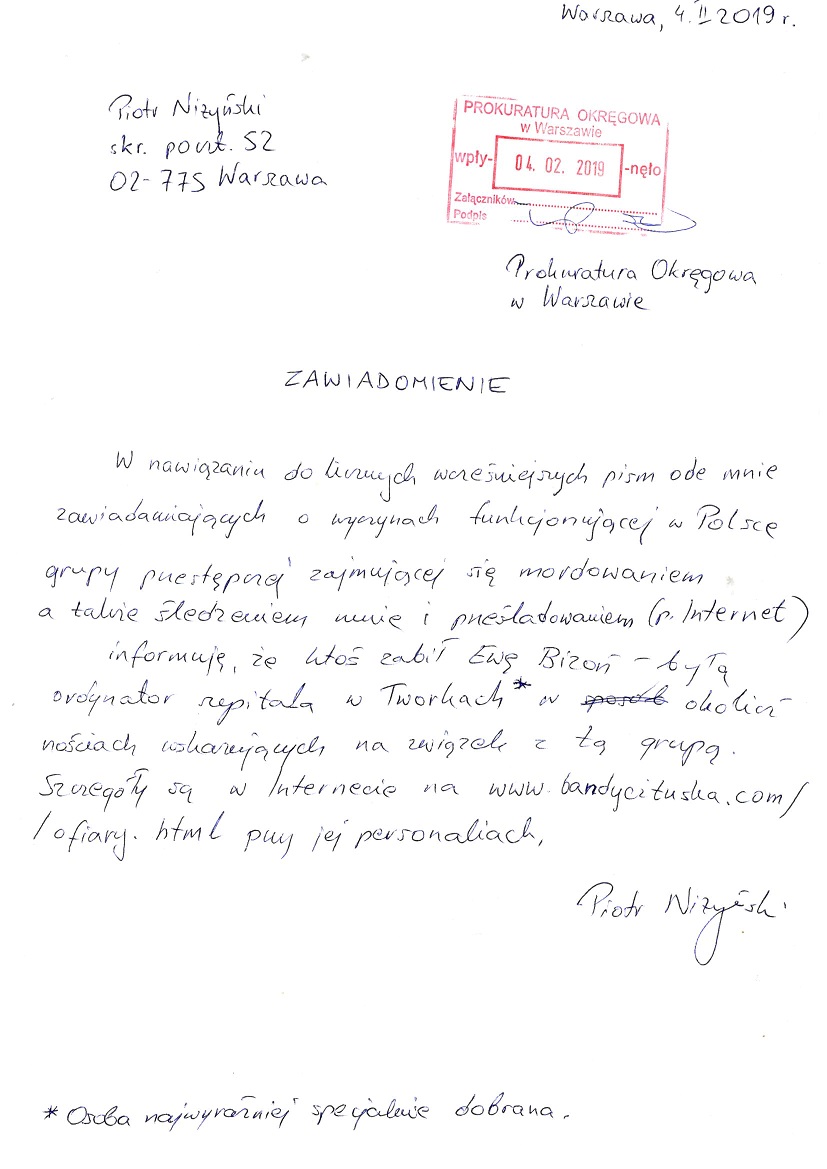 Warszawa, 4.II 2019 r.
Piotr Niżyński
skr. poczt. 52
02-775 Warszawa
PROKURATURA OKRĘGOWA
w Warszawie
wpły- 04. 02. 2019 -nęło
Załączników
Podpis
Prokuratura Okręgowa
w Warszawie
ZAWIADOMIENIE
W nawiązaniu do licznych wcześniejszych pism ode mnie
zawiadamiających o wyczynach funkcjonującej w Polsce
grupy przestępczej zajmującej się mordowaniem
a także śledzeniem mnie i prześladowaniem (p. Internet)
informuję, że ktoś zabił Ewę Bizoń – byłą
ordynator szpitala w Tworkach* w sposób okolicz
nościach wskazujących na związek z tą grupą.
Szczegóły są w Internecie na www.bandycituska.com/
/ofiary.html przy jej personaliach.
Piotr Niżyński
* Osoba najwyraźniej specjalnie dobrana.